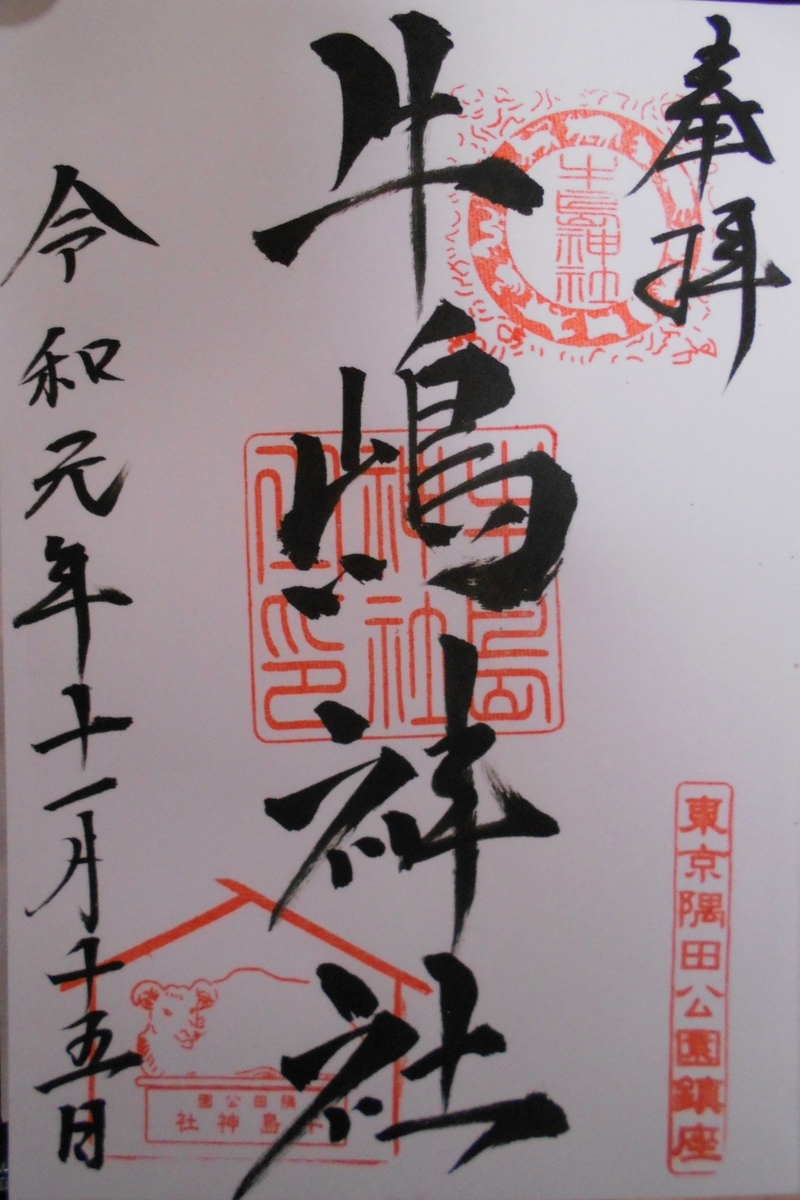 奉拝
牛嶋神社
令和元年十一月十五日
牛島神社
牛島
神社
之印
東京隅田公園鎮座
隅田公園
牛島神社